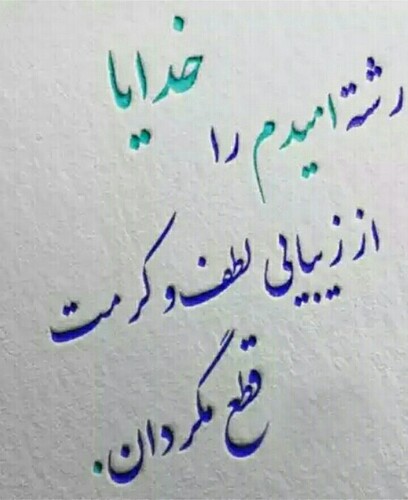 خدایا
رشتهٔ امیدم را
از زیبایی لطف و کرمت
قطع مگردان.